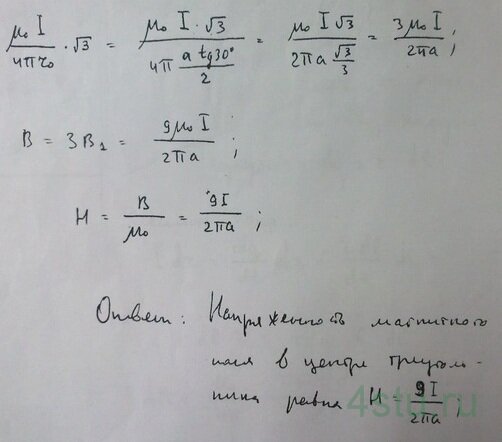 μ₀ I / 4πr₀ · √3 = μ₀ I · √3 / 4π (a tg30° / 2) = μ₀ I √3 / 2πa (√3/3) = 3μ₀ I / 2πa ;
B = 3B₁ = 9μ₀ I / 2πa ;
H = B / μ₀ = 9I / 2πa ;
Ответ: Напряженность магнитного
поля в центре треуголь-
ника равна H = 9I / 2πa ;
4stu.ru